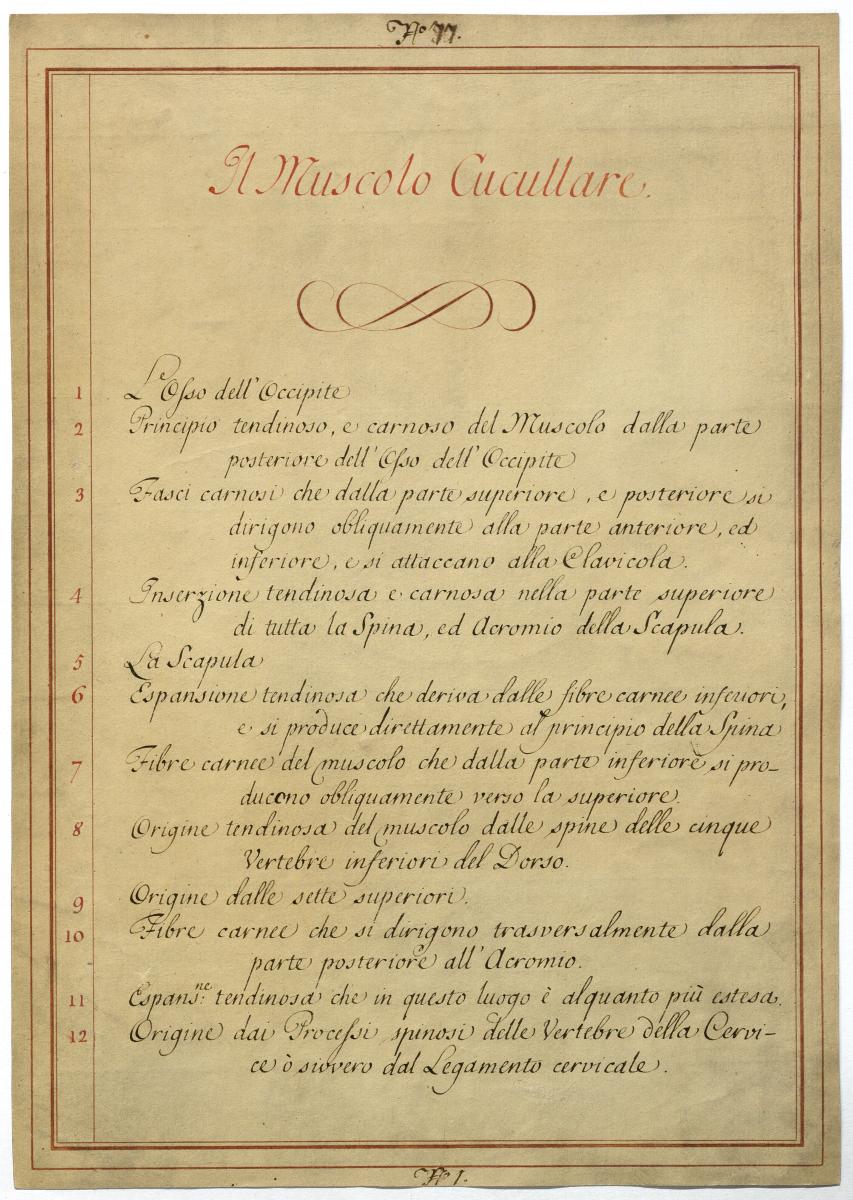 No 77.
Il Muscolo Cucullare.
1 L'Osso dell'Occipite
2 Principio tendinoso, e carnoso del Muscolo dalla parte
posteriore dell'Osso dell'Occipite
3 Fasci carnosi che dalla parte superiore, e posteriore si
dirigono obliquamente alla parte anteriore, ed
inferiore, e si attaccano alla Clavicola.
4 Inserzione tendinosa e carnosa nella parte superiore
di tutta la Spina, ed Acromio della Scapula.
5 La Scapula
6 Espansione tendinosa che deriva dalle fibre carnee inferiori,
e si produce direttamente al principio della Spina
7 Fibre carnee del muscolo che dalla parte inferiore si pro-
ducono obliquamente verso la superiore.
8 Origine tendinosa del muscolo dalle spine delle cinque
Vertebre inferiori del Dorso.
9 Origine dalle sette superiori.
10 Fibre carnee che si dirigono trasversalmente dalla
parte posteriore all'Acromio.
11 Espans.ne tendinosa che in questo luogo è alquanto più estesa.
12 Origine dai Processi spinosi delle Vertebre della Cervi-
ce ò sivvero dal Legamento cervicale.
No 1.